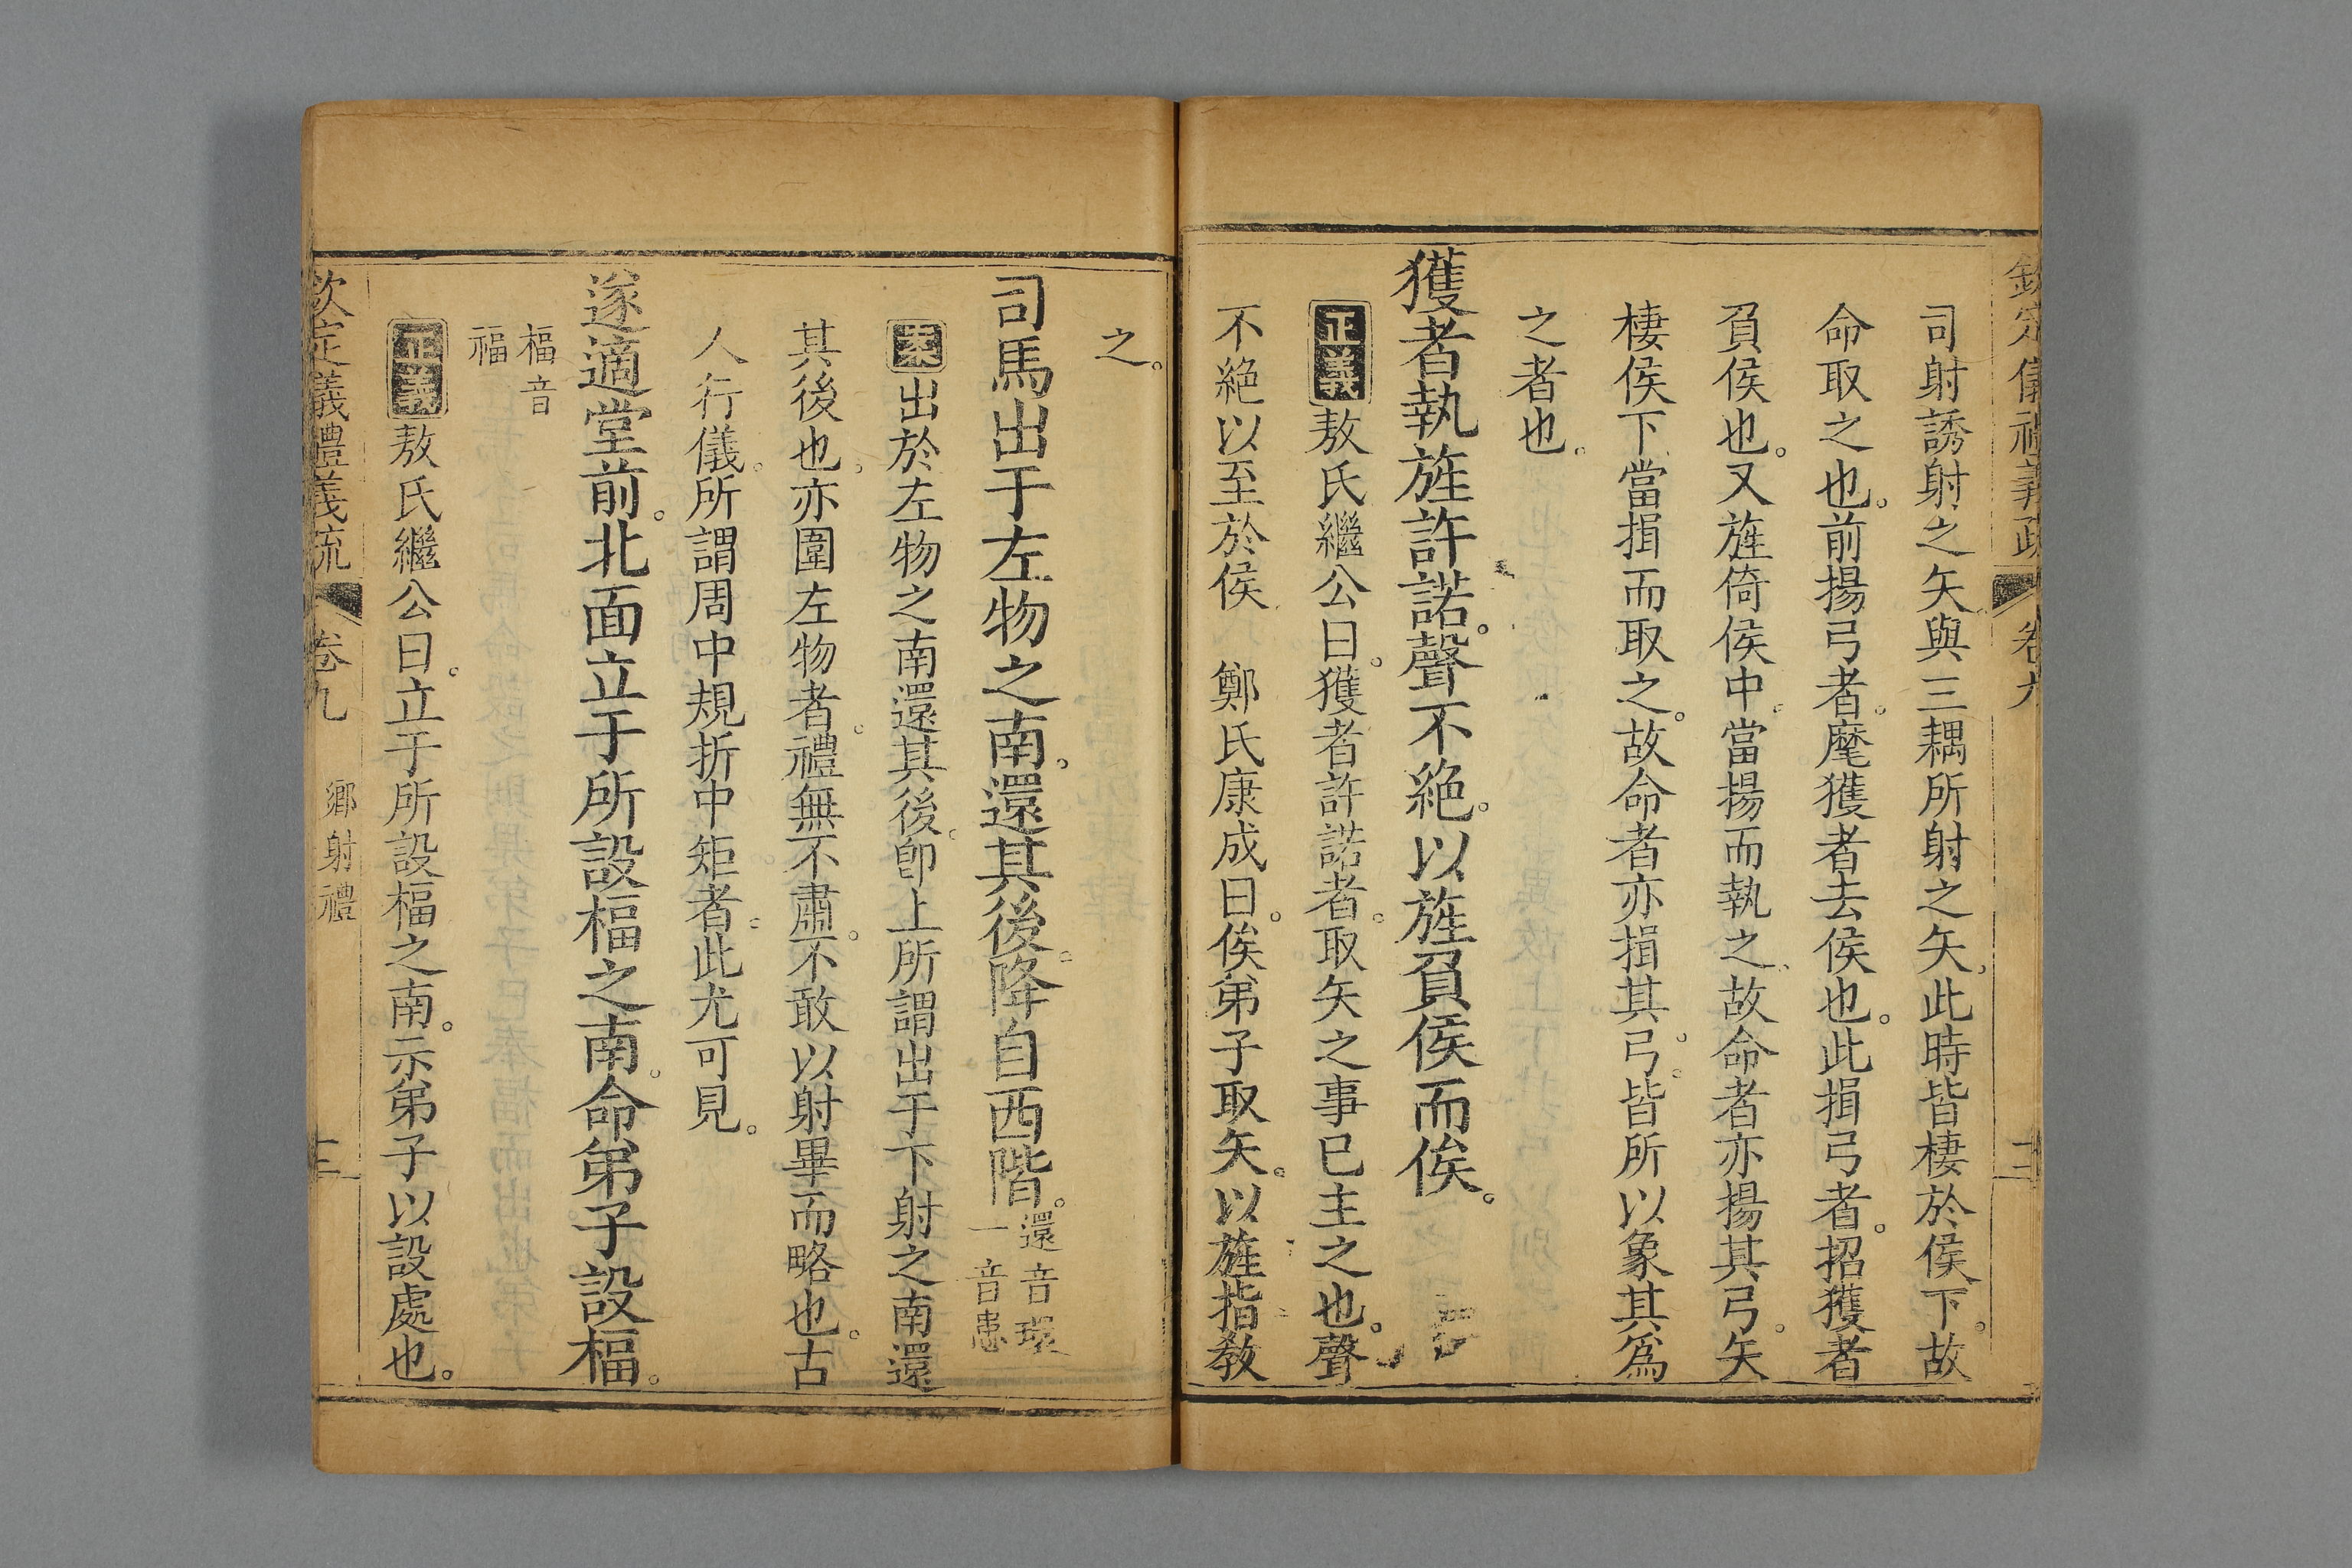 欽定儀禮義疏 卷九 十三
司射誘射之矢與三耦所射之矢此時皆棲於侯下。故
命取之也。前揚弓者。麾獲者去侯也。此揖弓者。招獲者
負侯也。又旌倚侯中。當揚而執之。故命者亦揚其弓。矢
棲侯下當揖而取之。故命者亦揖其弓。皆所以象其爲
之者也。
獲者執旌許諾。聲不絶。以旌負侯而俟。
正義敖氏繼公曰。獲者許諾者。取矢之事已主之也。聲
不絶以至於侯 鄭氏康成曰。俟弟子取矢。以旌指教
之。
司馬出于左物之南。還其後。降自西階。還音環一音患
案出於左物之南還其後。卽上所謂出于下射之南還
其後也。亦圍左物者。禮無不肅。不敢以射畢而略也。古
人行儀。所謂周中規折中矩者。此尤可見。
遂適堂前。北面立于所設楅之南。命弟子設楅。
楅音
福
正義敖氏繼公曰。立于所設楅之南。示弟子以設處也。
欽定儀禮義疏 卷九 鄉射禮 十三